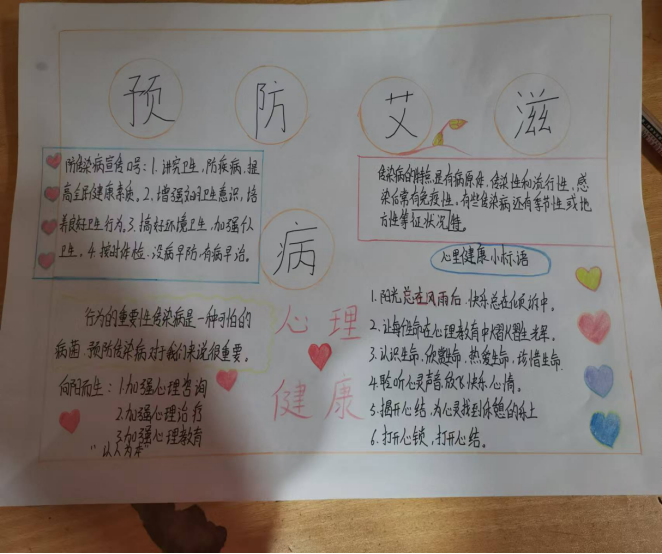 预 防 艾 滋
病
防传染病宣传口号：1.讲究卫生，防疾病，提
高全民健康素质。2.增强文明卫生意识，培
养良好卫生行为。3.搞好环境卫生，加强个人
卫生。4.按时体检，没病早防，有病早治。
传染病的特点是有病原体，传染性和流行性，感
染后常有免疫性，有些传染病还有季节性或地
方性等征状况特。
心里健康小标语
行为的重要性传染病是一种可怕的
病菌 预防传染病对于我们来说很重要。
心 理
健 康
向阳而生：1.加强心理咨询
2.加强心理治疗
3.加强心理教育
"以人为本"
1.阳光总在风雨后，快乐总在倾诉中。
2.让每生命在心理教育中熠熠生辉。
3.认识生命，欣赏生命，热爱生命，珍惜生命.
4.聆听心灵声音，放飞快乐心情。
5.揭开心结，为心灵找到休憩的乐土
6.打开心锁，打开心结。